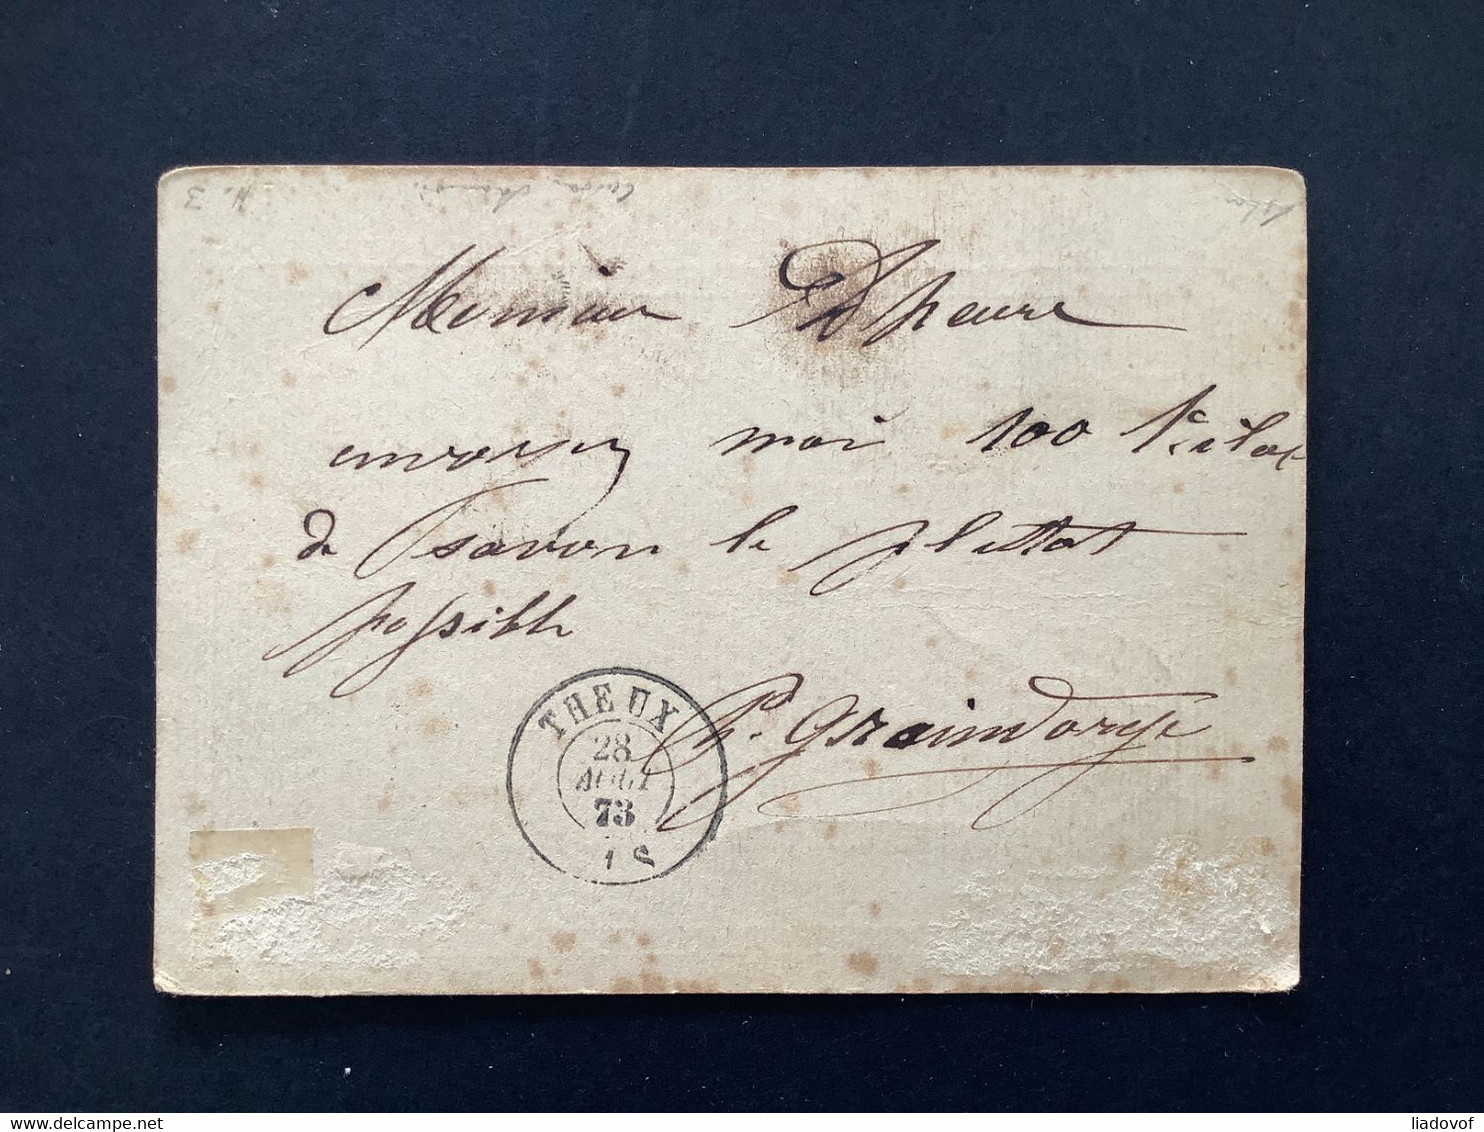 Monsieur Dheure
envoysez moi 100 Kilos
de savon le plustot
possible
P. Graindorge
THEUX
28
AOUT
73
1 S
N. 3
delcampe.net
liadovof